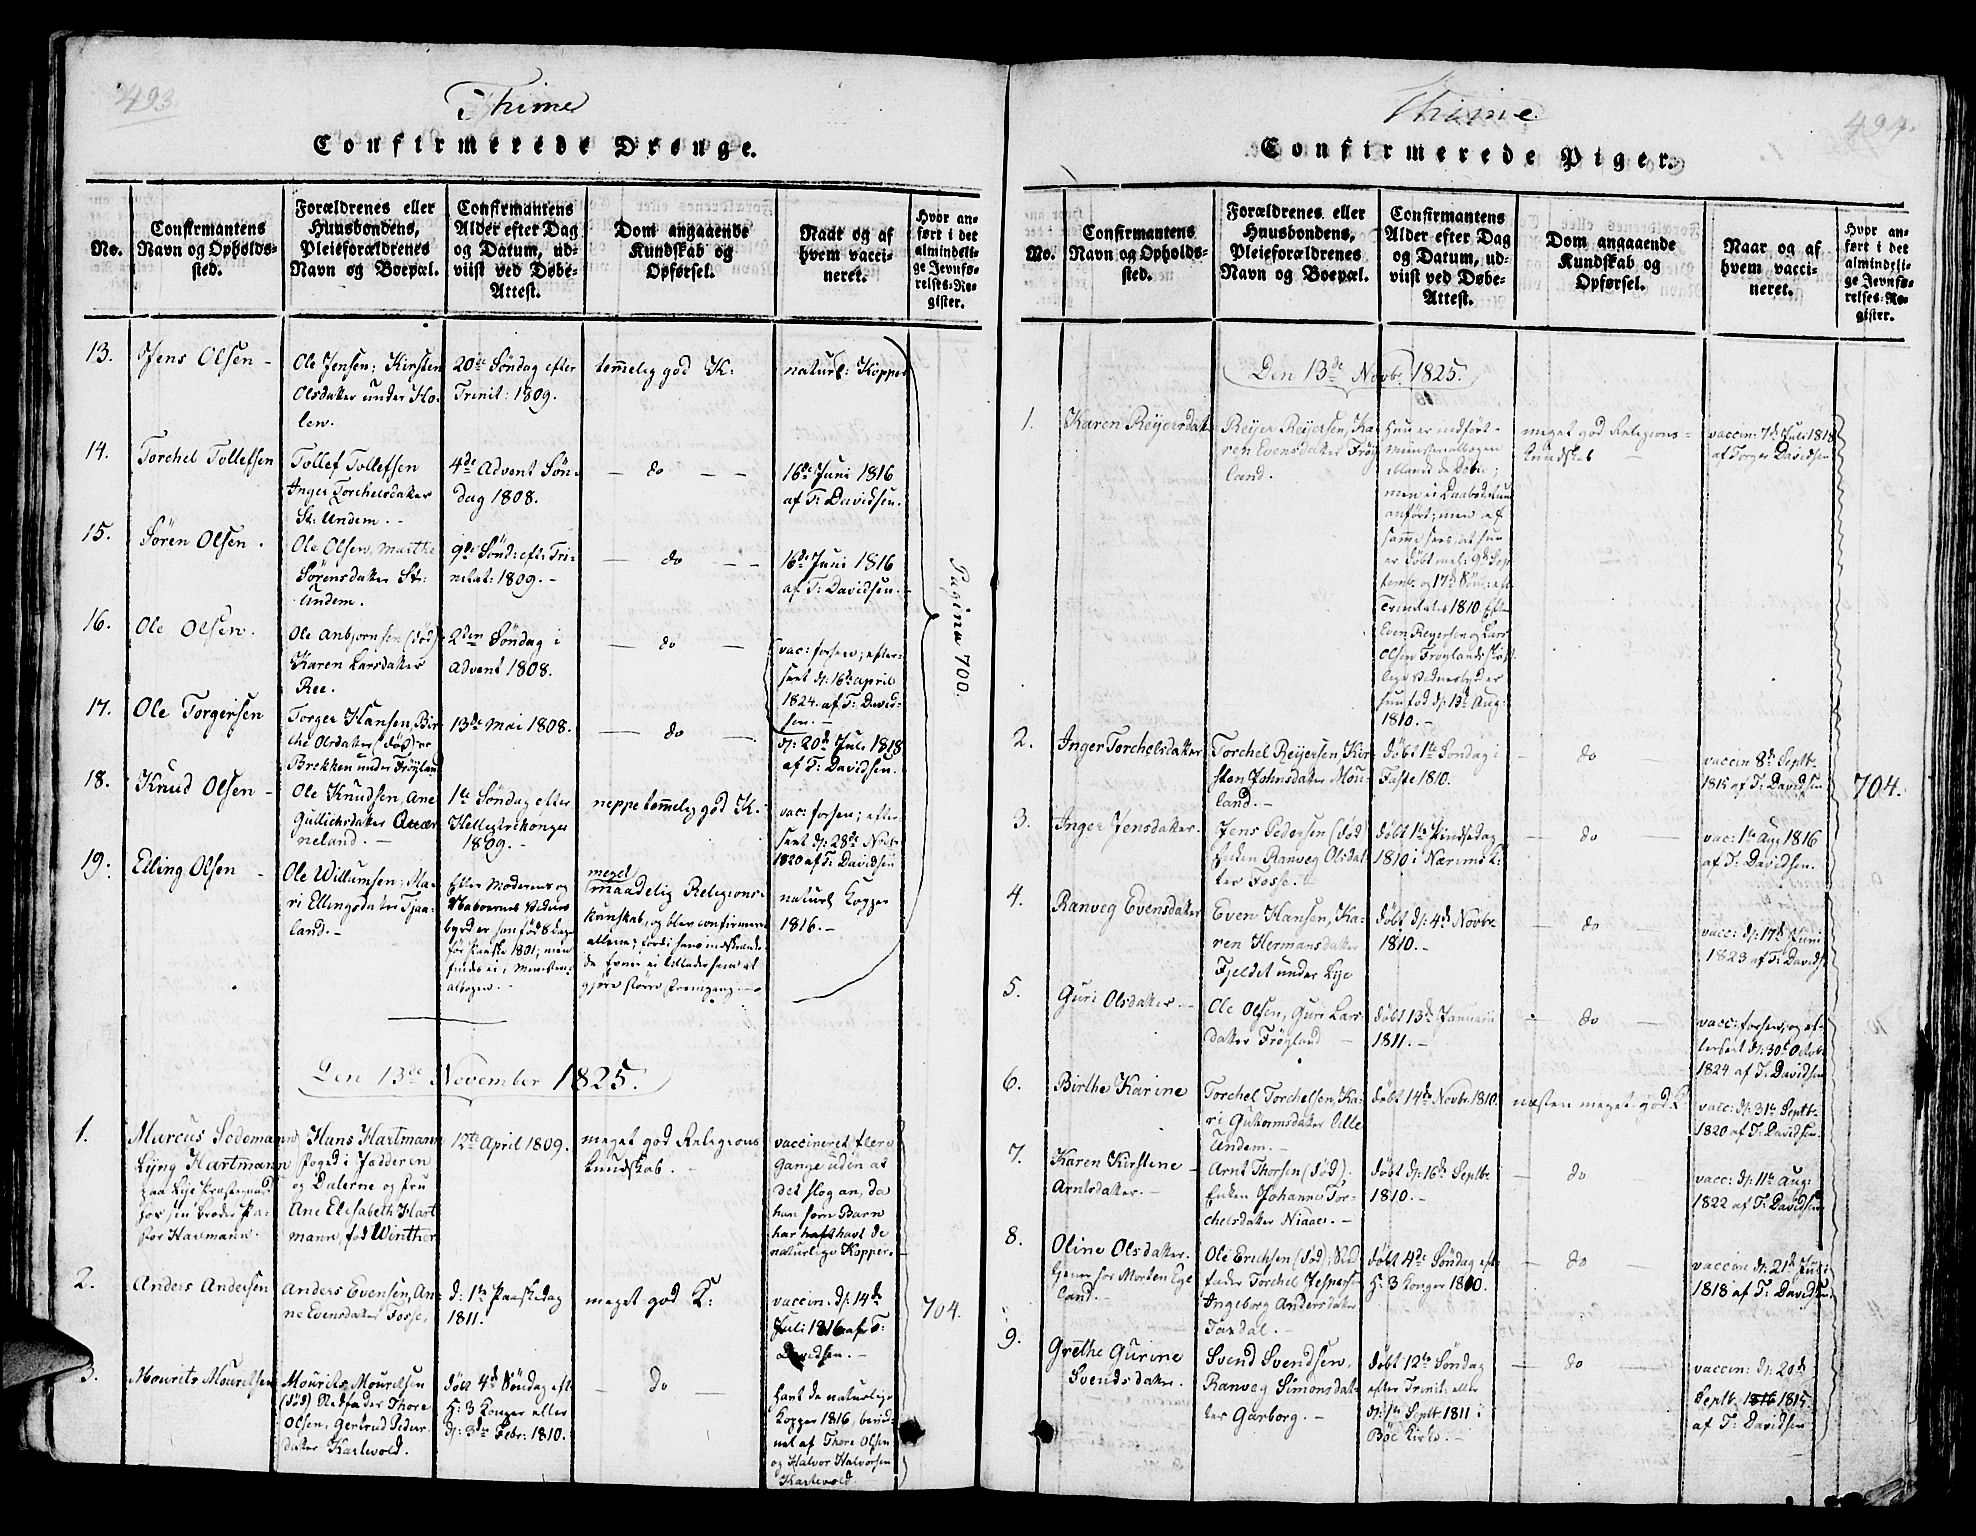 493.
Thime
Confirmerede Drenge.
No.
Confirmantens
Navn og Opholds-
sted.
Forældrenes eller
Huusbondens,
Pleieforældrenes
Navn og Boepæl.
Confirmantens
Alder efter Dag
og Datum, ud-
viist ved Døbe-
Attest.
Dom angaaende
Kundskab og
Opførsel.
Naar og af
hvem vacci-
neret.
Hvor an-
ført i det
almindeli-
ge Jevnfø-
relses-Re-
gister.
13.
Jens Olsen -
Ole Jensen; Kirsten
Olsdatter under Ho-
len.
20de Søndag efter
Trinit: 1809.
temmelig god K:
naturl: Kopper
14.
Torchel Tollefsen
Tollef Tollefsen
Inger Torchelsdatter
St: Undem. -
4de Advent Søn-
dag 1808.
— do — —
16de Juni 1816
af T: Davidsen.
15.
Sören Olsen.
Ole Olsen, Marthe
Sörensdatter St:
Undem.
9de Sönd: eft: Tri-
nitat: 1809. -
— do — —
16de Juni 1816
af T: Davidsen.
16.
Ole Olsen.
Ole Anbjornsen (död)
Karen Larsdatter
Ree.
2den Søndag i
Advent 1808.
— do —
vac: forsen; efter-
seet d: 16de april
1824. af T: David-
sen. -
17.
Ole Torgersen
Torger Hansen, Bir-
the Olsdatter (død)
Brekken under Fröylan
13de Mai 1808.
— do —
d: 20de Juli 1818
af T: Davidsen.
18.
Knud Olsen -
Ole Knudsen, Ane
Gullichsdatter Quær-
neland. -
1te Søndag efter
Helligtrekonger
1809. -
neppe temmelig god K:
vac: forsen; efter-
seet d: 28de
1820 af T: Davidsen
19.
Elling Olsen -
Ole Willumsen; Ma-
ri Ellingsdatter Tjaa-
land. -
Efter Moderens og
Naboernes Vidnes
byrd er han fød 8 dage
før Paaske 1801; men
findes ei i Ministeri-
albogen. -
meget
maadelig Religions-
kunskab, og blev confirmeret
allene; fordi hans indskrænke-
de Evner ei tillader ham at
gjøre større Fremgang. -
naturl Kopper
1816. -
Pagina 700.
Den 13de November 1825.
1.
Marcus Sedemann
Lÿng Hartmann
paa Lye Præstegaard
hos sin Broder Pa-
stor Hartmann.
Hans Hartmann
foged i Jædderen
og Dalerne og fru
Ane Elisabeth Hart
mann, fød Winther
12te April 1809.
meget god Religions
kundskab. -
vaccineret flere
Gange uden at
det slog an, da
han som Barn
har havt de
naturlige Kopper.
2.
Anders Andersen
Anders Evensen, An-
ne Evensdatter Fosse.
d: 1te Paaskedag
1811.
meget god K:
vaccin: d: 14de
Juli 1816 af T:
Davidsen. -
704.
3.
Mourits Mouritsen
Mourits Mouritsen
(død) Stedfader Thore
Olsen, Gertrud Peder
datter Kartevold.
döbt 4de Søndag eft
H: 3 Konger eller
d: 3de Febr: 1810.
— do —
havt de naturlige
Kopper 1816, bevid-
net af Thore Olsen
og Halvor Halvorsen
Kartevold.
494.
Thime
Confirmerede Piger.
No.
Confirmantens
Navn og Opholds-
sted.
Forældrenes eller
Huusbondens,
Pleieforældrenes
Navn og Boepæl.
Confirmantens
Alder efter Dag
og Datum, ud-
viist ved Døbe-
Attest.
Dom angaaende
Kundskab og
Opførsel.
Naar og af
hvem vacci-
neret.
Hvor an-
ført i det
almindeli-
ge Jevnfø-
relses-Re-
gister.
Den 13de Novbr. 1825.
1.
Karen Reÿersdatt
Reÿer Reÿersen, Ka-
ren Evensdatter Frøy
land.
Hun er indført
Ministerialbogen
iblandt de Døbte;
men ei Daabsdatum
anført; men af
samme sees at hun
er døbt mel: 9de Sep
temb: og 17de Sönd: eft
Trinitatis 1810. Efter
Even Reyersen og Lars
Olsen Frøylands skrift
lige Vidnesbyrd er
hun fød d: 13de Aug:
1810. -
meget god Religions-
kundskab —
vaccin: 7de Juli 1818
af Torger Davidsen
2.
Inger Torchelsdatter
Torchel Reÿersen, Kir
sten Johnsdatter Mou-
land. -
døbt 1te Søndag i
Faste 1810.
— do —
vaccin 8de Septbr
1815 af T: Davidsen
704.
3.
Inger Jensdatter.
Jens Pedersen (død
Enken Ranveg Olsdat
ter Fosse. -
døbt 1te Pindsedag
1810 i Nærims K:
— do —
vac: 1te Aug 1816
af T: Davidsen.
4.
Ranveg Evensdatter
Even Hansen, Ka-
ren Hermansdatter
Fjeldet under Lye
døbt d: 4de Novbr
1810. -
— do —
vacc: d: 17de Juni
1823 af T: Davidse
5.
Guri Olsdatter. -
Ole Olsen, Guri Lars-
datter Frøyland —
døbt 13de Januarii
1811. -
— do —
vacc: forsen, og ef-
terseet d: 30te Octob:
1824 af T: Davidsen
6.
Birthe Karine
Torchel Torchelsen, Ka-
ri Guttormsdatter Lille
Undem.
døbt 14de Novbr 1810.
næsten meget god K
vacc: d: 31te Septbr
1820 af T: Davidsen.
7.
Karen Kirstine -
Arntsdatter. -
Arnt Thorsen (død).
Enken Johanne Tor-
chelsdatter Niaae. -
døbt d: 16de Septbr
1810. -
— do
vacc: d: 11te Aug:
1822 af T: Davidsen
8.
Oline Olsdatter.
tjener hos Morten Ege
land. -
Ole Erichsen (død); Sted
fader Torchel Jespers
Ingeborg Andersdatter
Taxdal. -
døbt 4de Søndag eft
H: 3 Konger 1810.
— do —
vaccin d: 21de Juli
1818 af T: Davidsen.
9.
Grethe Gurine
Svendsdatter.
Svend Svendsen,
Ranveg Simonsdat-
ter Garborg. -
døbt 12te Søndag
efter Trinit: eller
d: 1te Septbr 1811 i
Bøe Kirke. -
— do —
vaccin: d: 20de
Septbr. 1816 1815.
af T: Davidsen